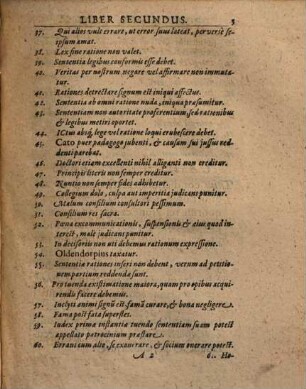 LIBER SECUNDUS. 3
37. Qui alios vult errare, ut error suus lateat, perversè se
ipsum amat.
38. Lex sine ratione non valet.
39. Sententia legibus conformis esse debet.
40. Veritas per nostrum negare vel affirmare non immuta-
tur.
41. Rationes detrectare signum est iniqui affectus.
42. Sententia ab omni ratione nuda, iniqua præsumitur.
43. Sententiam non autoritate proferentium sed rationibus
& legibus metiri oportet.
44. ICtus absq; lege vel ratione loqui erubescere debet.
45. Cato puer pædagogo jubenti, & causam sui jussus red-
denti parebat.
46. Doctori etiam excellenti nihil alleganti non creditur.
47. Principis literis non semper creditur.
48. Nuntio non semper fides adhibetur.
49. Collegium dolo, culpa aut imperitia judicans punitur.
50. Malum consilium consultori pessimum.
51. Consilium res sacra.
52. Pœna excommunicationis, suspensionis & ejus quod in-
terest, malè judicans punitur.
53. In decisoriis non uti debemus rationum expressione.
54. Oldendorpius taxatur.
55. Sententiæ rationes inseri non debent, verùm ad petitio-
nem partium reddenda sunt.
56. Pro tuenda existimatione majora, quàm pro opibus acqui-
rendis facere debemus.
57. Inclyti animi signum est famâ curare, & bona negligere.
58. Fama post fata superstes.
59. Iudex primæ instantiæ tuendo sententiam suam potest
appellato patrocinium præstare.
60. Erranti cum alio, se exonerare, & socium onerare potest.
A 2 6.. Ho-